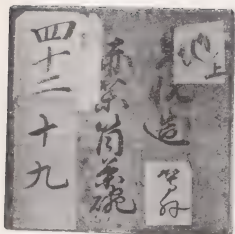 地上
造
赤楽筒茶碗
四十二 十九